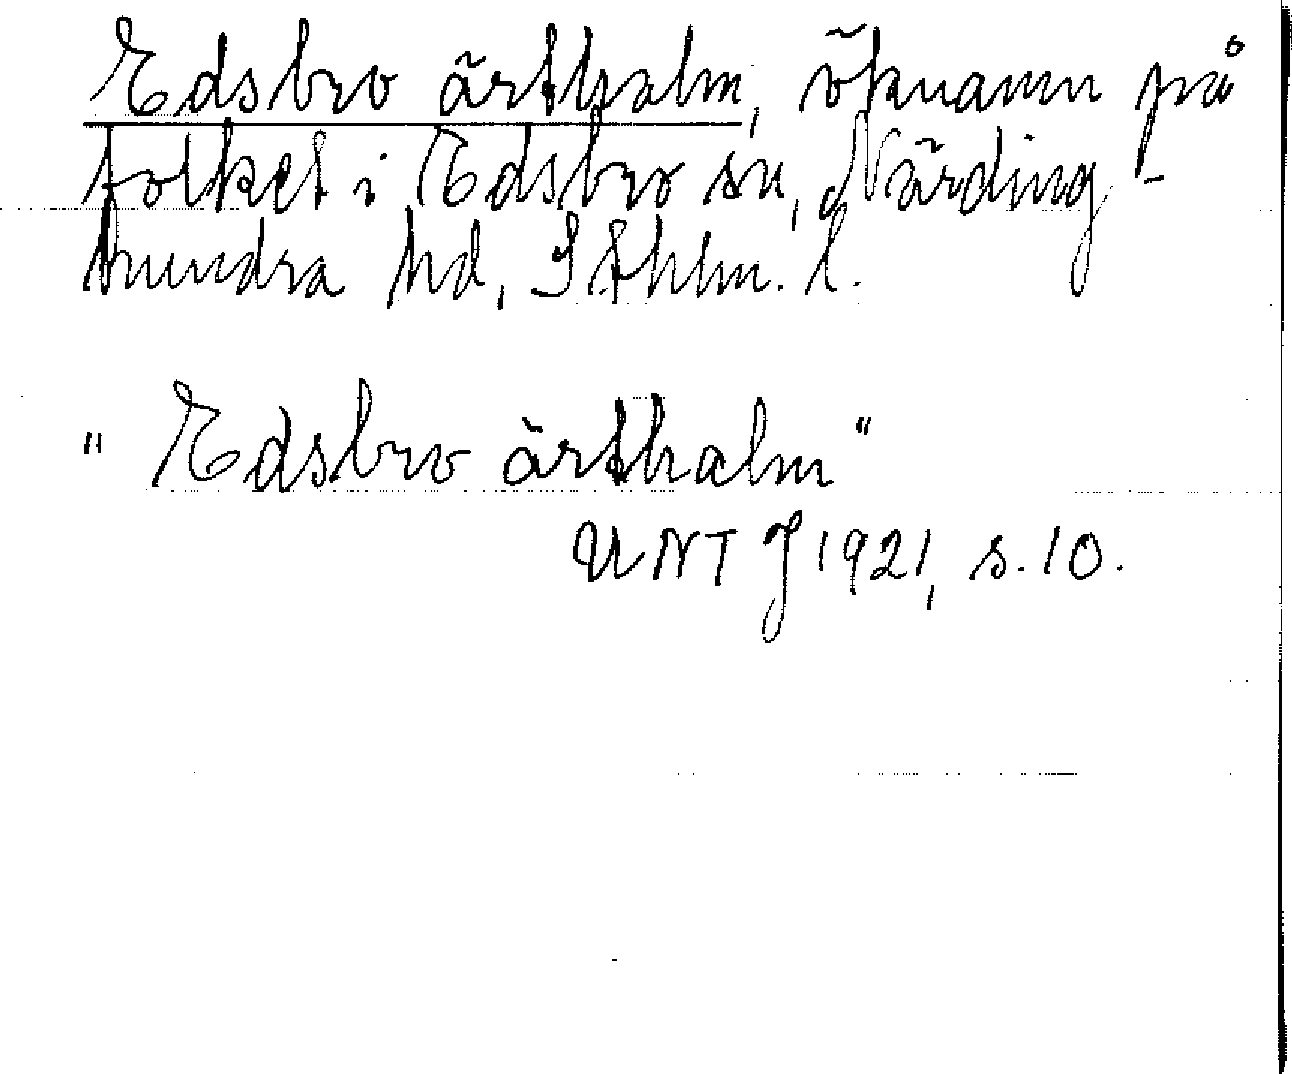 Edsbro ärthalm, öknamn på
folket i Edsbro sn, Närding-
hundra hd, Sthlm. l.
"Edsbro ärthalm"
UNT J 1921, s. 10.